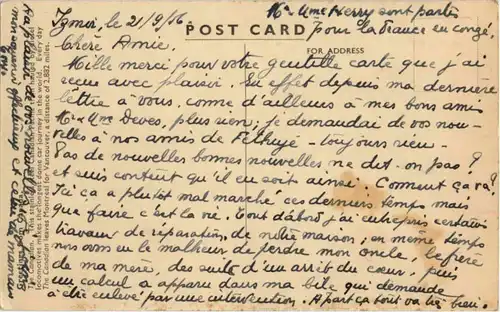 Mr Mme Herry sont partis
Izmir, le 21/9/56. pour la France en congé.
POST CARD
FOR ADDRESS
Chère Amie.
Mille merci pour votre gentille carte que j'ai
reçue avec plaisir. En effet depuis ma dernière
lettre à vous, comme d'ailleurs à mes bons amis
Mr Mme Deves, plus rien; je demandai de vos nou-
velles à nos amis de - toujours rien -
Pas de nouvelles bonnes nouvelles ne dit-on pas?
et suis content qu'il en soit ainsi. Coment ça va?
Ici ça a plutôt mal marché ces derniers temps mais
que faire c'est la vie. Tout d'abord j'ai entrepris certains
travaux de réparation, de notre maison; en même temps
nous avons eu le malheur de perdre mon oncle, le frère
de ma mère, des suite d'un arrêt du cœur, puis
un calcul a apparu dans ma bile qui demande
à être enlevé par une intervention. A part ça tout va très bien.
longest dome car journey in the world. Every day
The Canadian leaves Montreal for Vancouver, a distance of 2,882 miles.